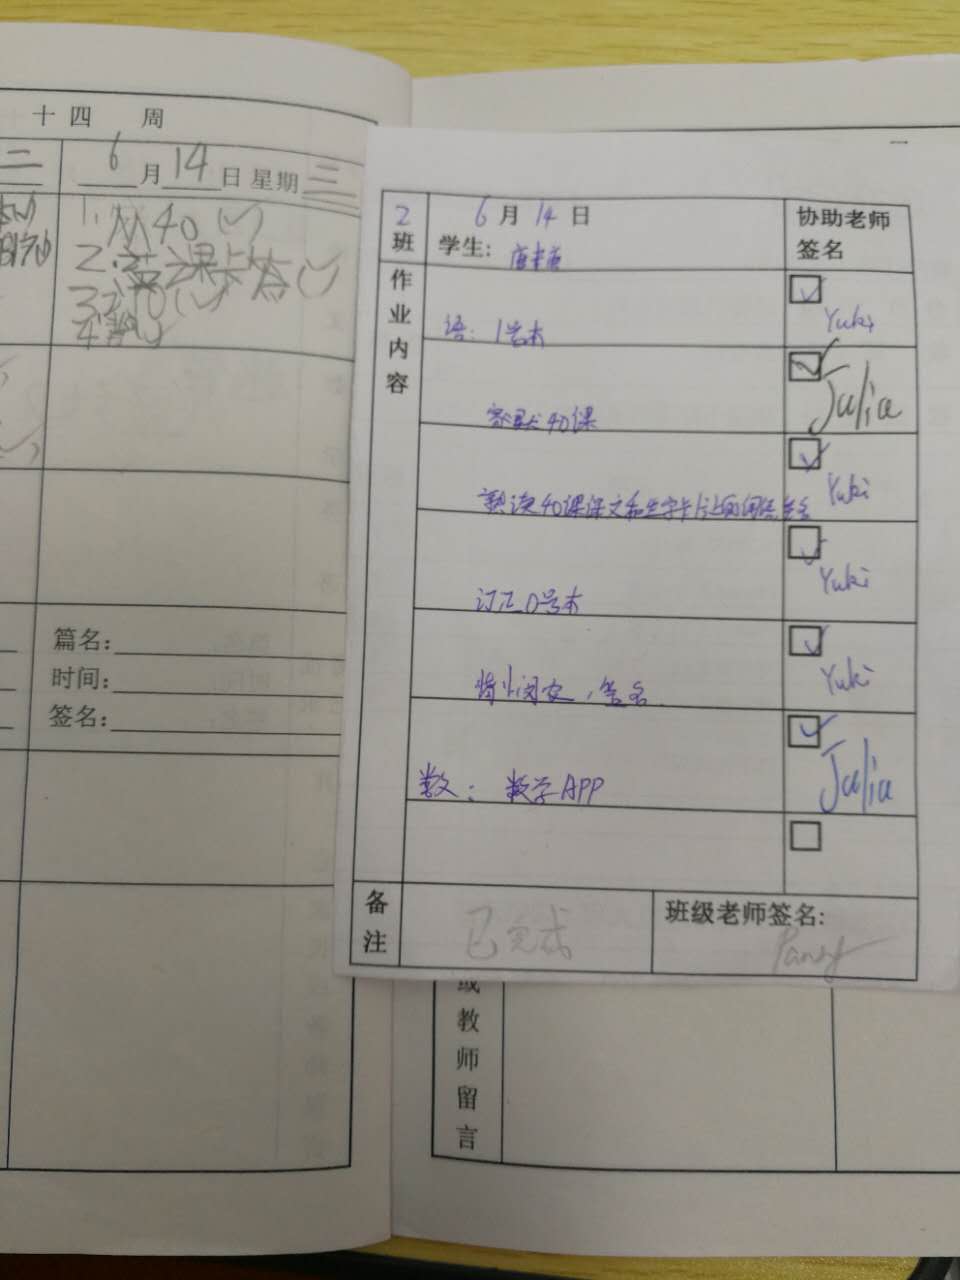 十四 周
二
6月14日 星期三
1. 从40(✓)
3.订0(✓)
篇名:
时间:
签名:
一
2班
6月14日
学生:
协助老师签名
作业内容
语: 1号本
Yuki
家默40课
Julia
熟读40课课文和生字卡片上的
Yuki
订正0号本
Yuki
签名.
Yuki
数: 数学APP
Julia
备注
已完成
班级老师签名:
Pansy
或教师留言